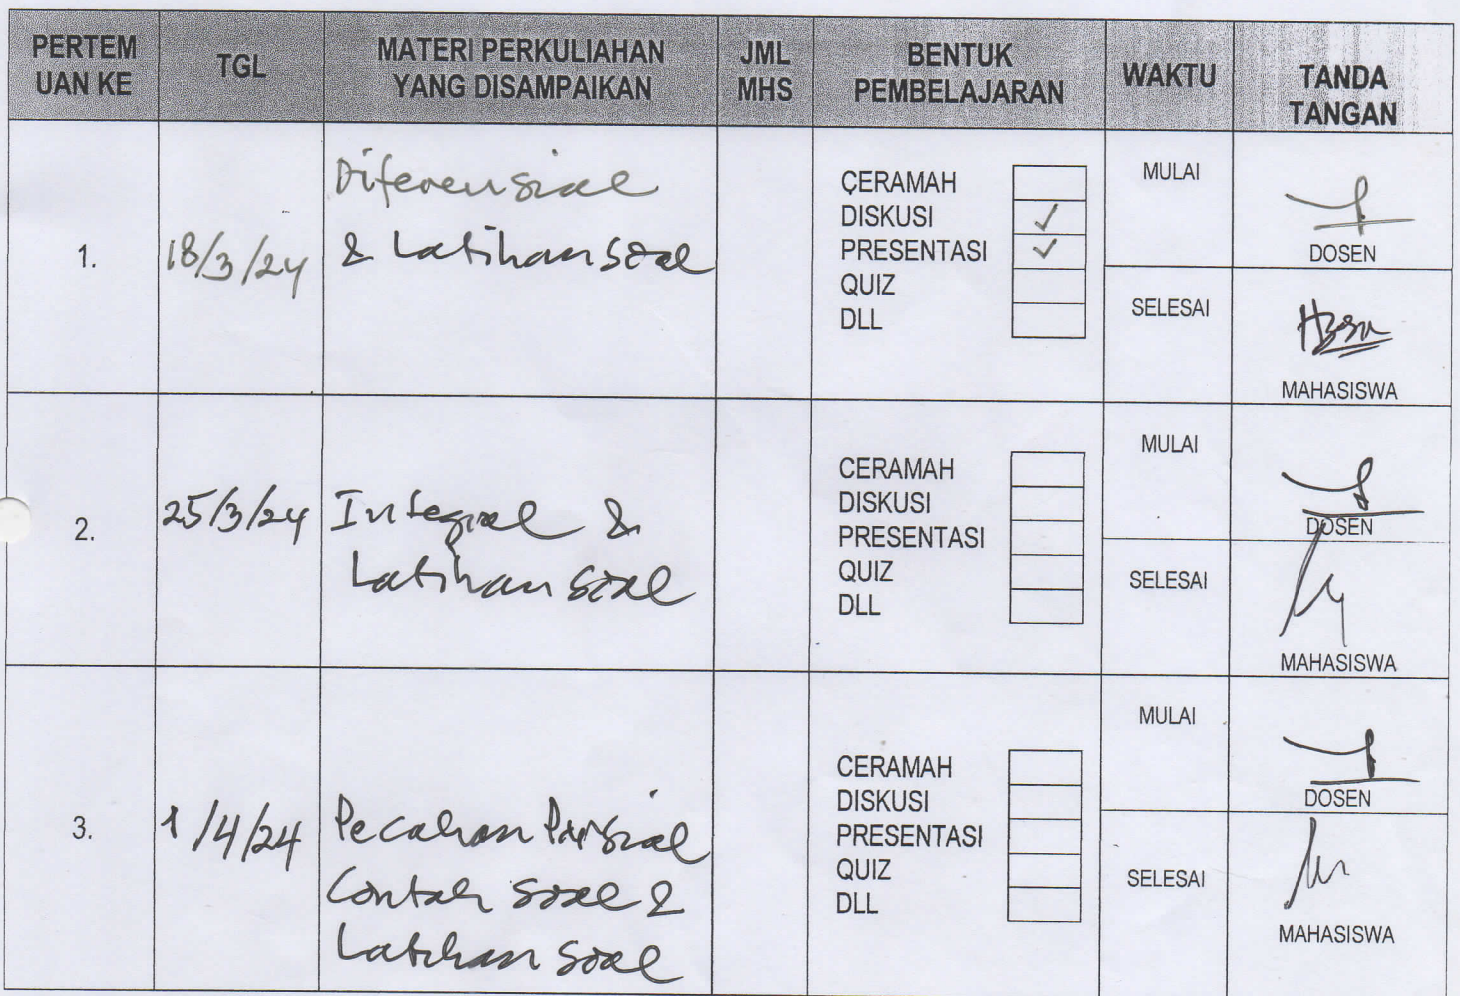 PERTEM
UAN KE
TGL
MATERI PERKULIAHAN
YANG DISAMPAIKAN
JML
MHS
BENTUK
PEMBELAJARAN
WAKTU
TANDA
TANGAN
1.
18/3/24
Diferensial
& Latihan soal
CERAMAH
DISKUSI ✓
PRESENTASI ✓
QUIZ
DLL
MULAI
SELESAI
DOSEN
MAHASISWA
2.
25/3/24
Integral &
Latihan soal
CERAMAH
DISKUSI
PRESENTASI
QUIZ
DLL
MULAI
SELESAI
DOSEN
MAHASISWA
3.
1/4/24
Pecahan Parsial
Contoh soal &
Latihan soal
CERAMAH
DISKUSI
PRESENTASI
QUIZ
DLL
MULAI
SELESAI
DOSEN
MAHASISWA